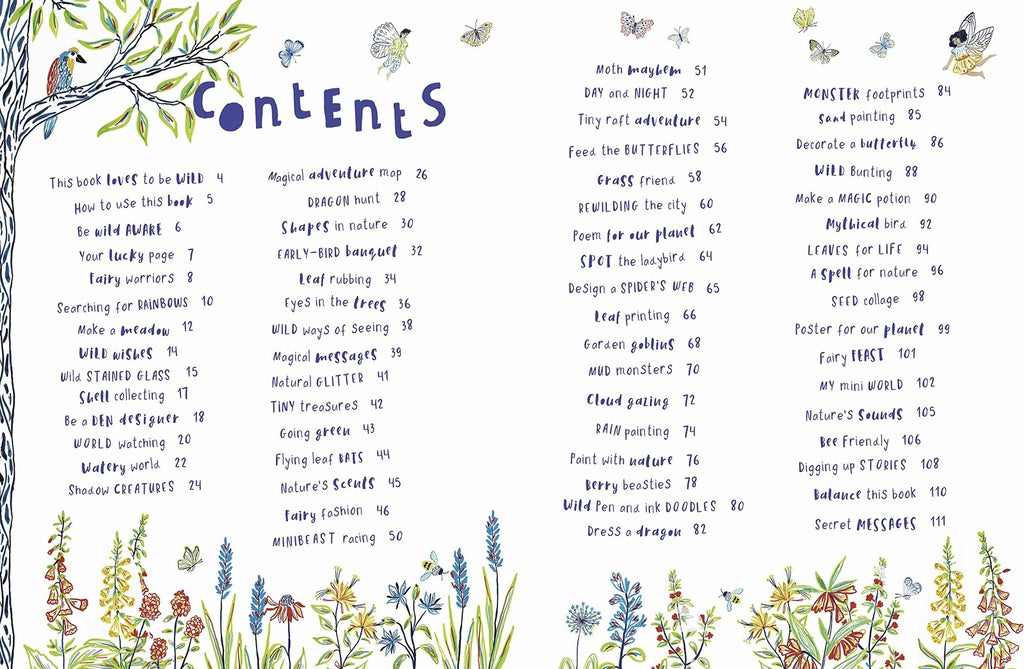 contents
This book loves to be WILD 4
How to use this book 5
Be wild AWAKE 6
Your lucky page 7
Fairy warriors 8
Searching for RAINBOWS 10
Make a meadow 12
Wild wishes 14
Wild STAINED GLASS 15
Shell collecting 17
Be a DEN designer 18
WORLD watching 20
Watery world 22
Shadow CREATURES 24
Magical adventure map 26
DRAGON hunt 28
Shapes in nature 30
EARLY-BIRD banquet 32
Leaf rubbing 34
Eyes in the trees 36
WILD ways of Seeing 38
Magical messages 39
Natural GLITTER 41
TINY treasures 42
Going green 43
Flying leaf BATS 44
Nature's Scents 45
Fairy fashion 46
MINIBEAST racing 50
Moth mayhem 51
DAY and NIGHT 52
Tiny raft adventure 54
Feed the BUTTERFLIES 56
Grass friend 58
REWILDING the city 60
Poem for our planet 62
SPOT the ladybird 64
Design a SPIDER'S WEB 65
Leaf printing 66
Garden goblins 68
MUD monsters 70
Cloud gazing 72
RAIN painting 74
Paint with nature 76
Berry beasties 78
Wild Pen and ink DOODLES 80
Dress a dragon 82
MONSTER footprints 84
Sand painting 85
Decorate a butterfly 86
WILD Bunting 88
Make a MAGIC potion 90
Mythical bird 92
LEAVES for LIFE 94
A Spell for nature 96
SEED collage 98
Poster for our planet 99
Fairy FEAST 101
MY mini WORLD 102
Nature's Sounds 105
Bee Friendly 106
Digging up STORIES 108
Balance this book 110
Secret MESSAGES 111